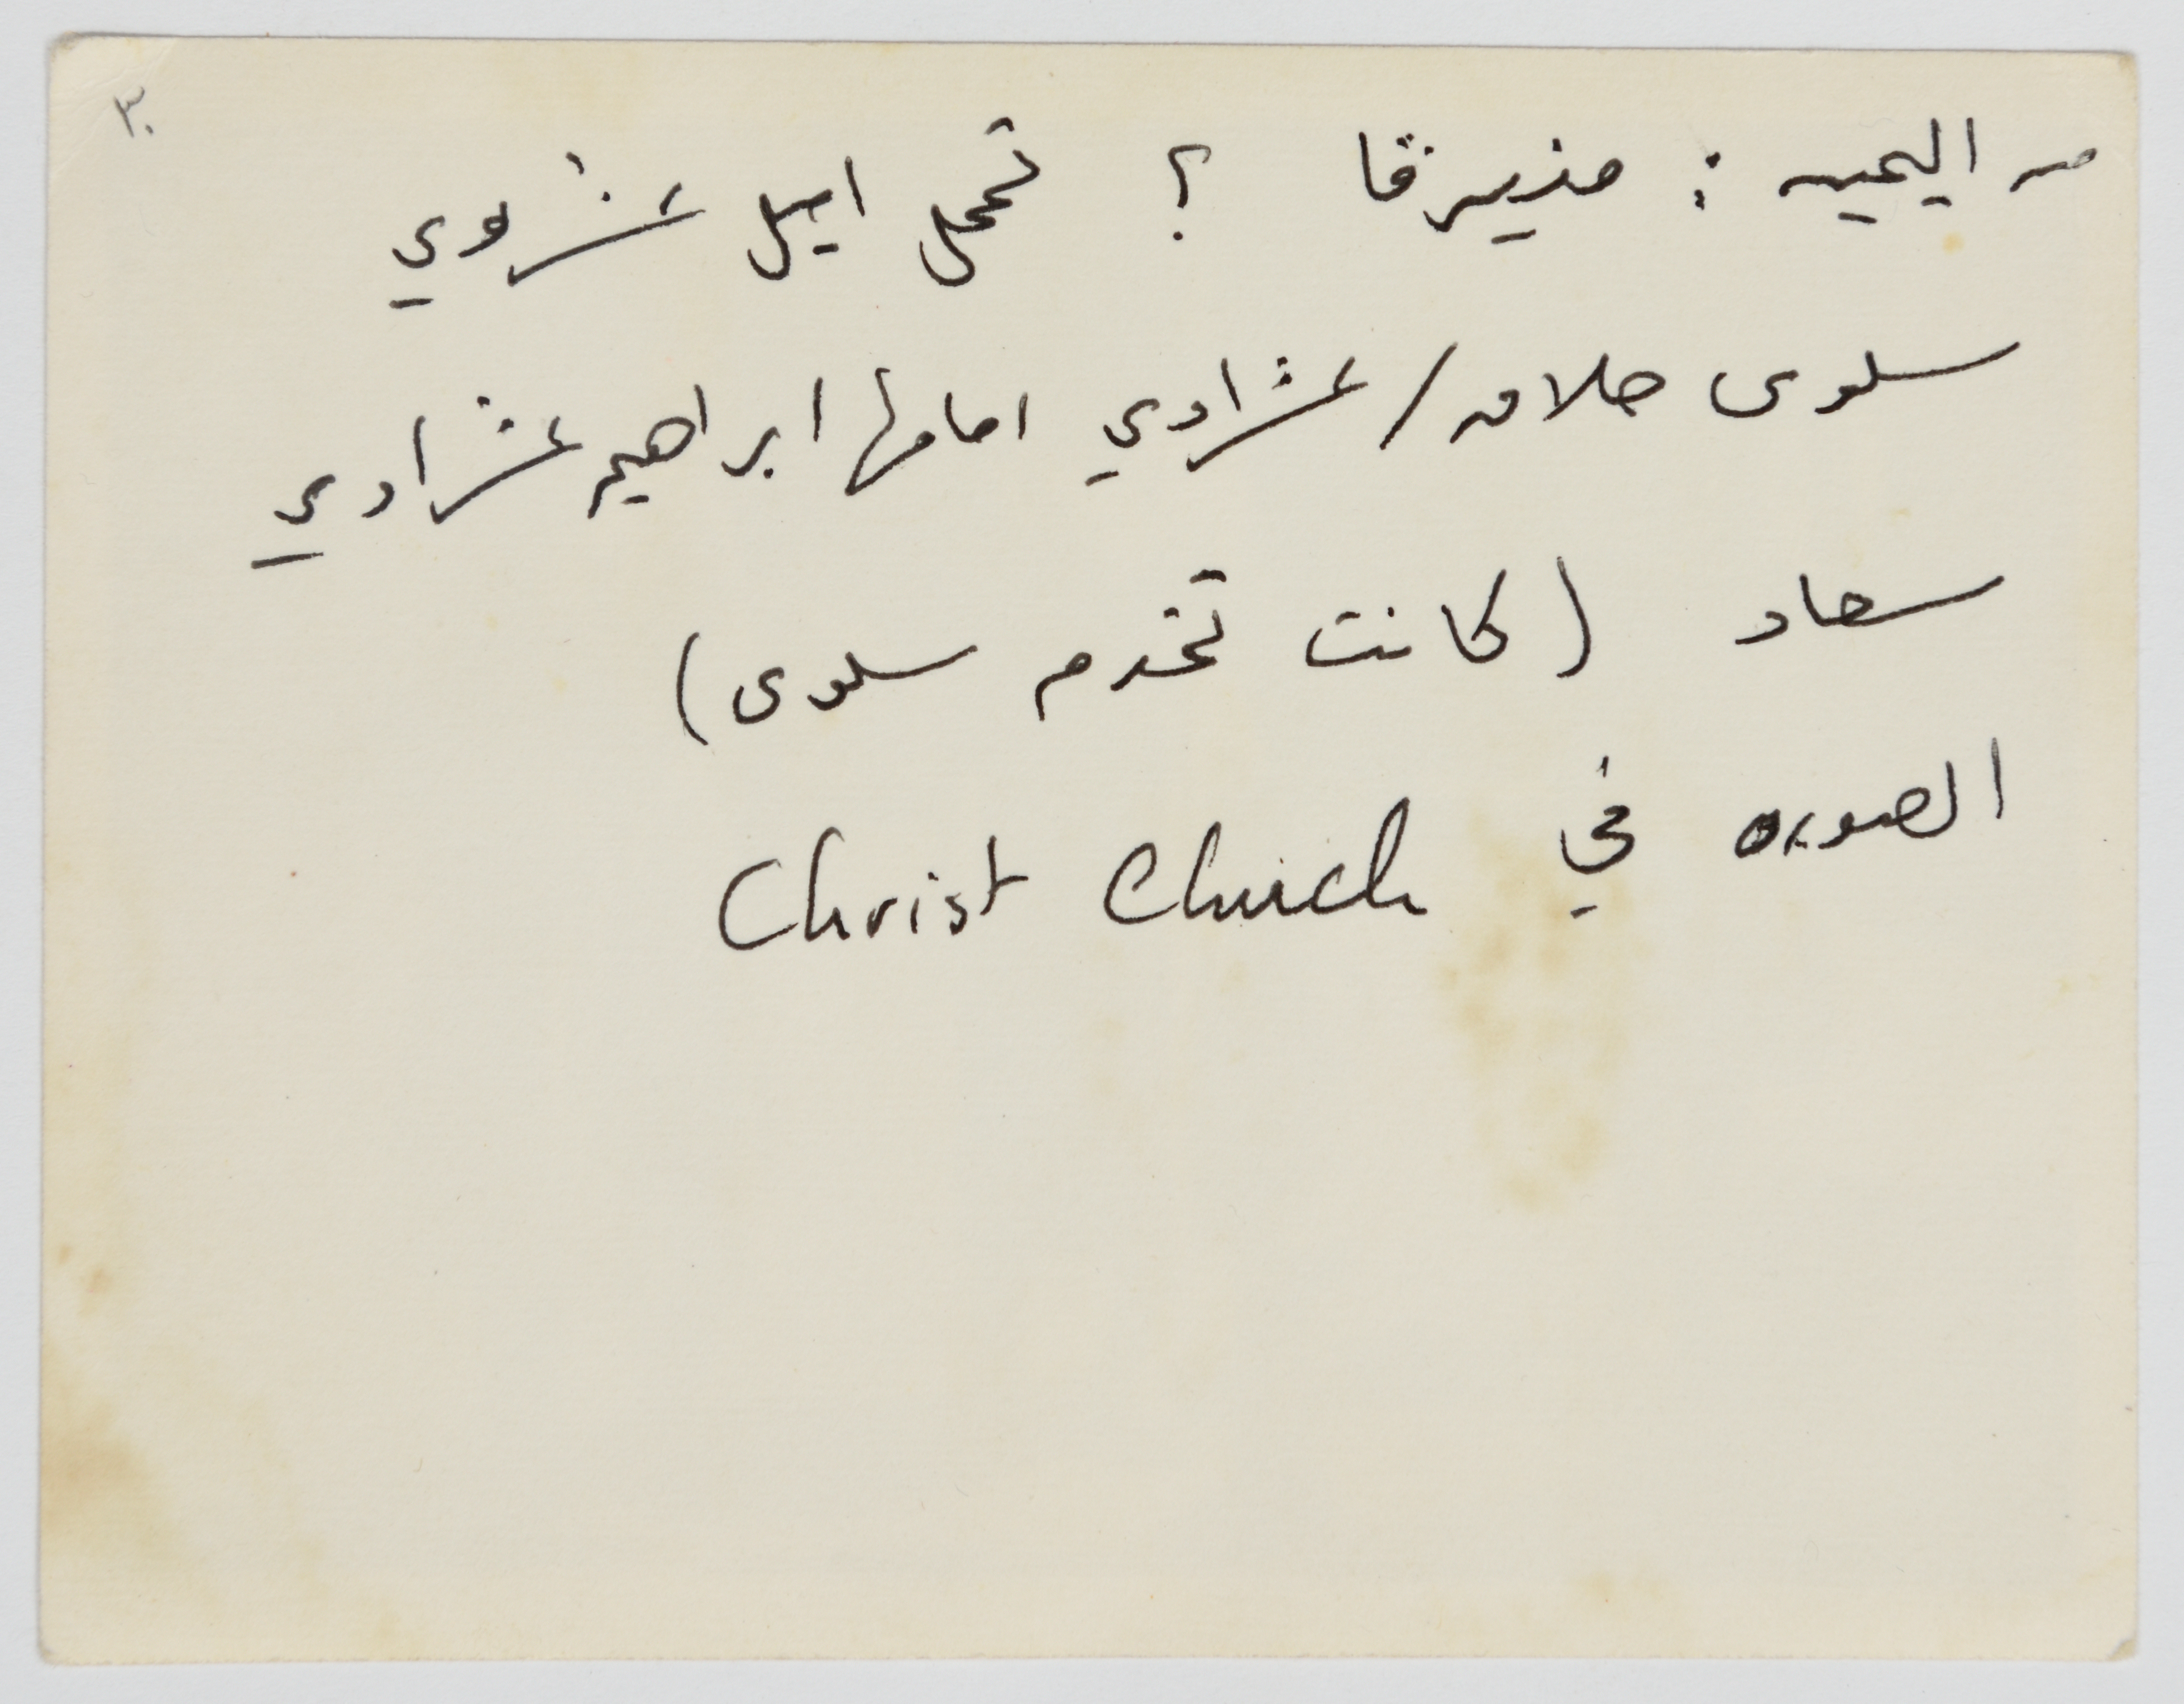 ٣٠
من اليمين : منيرفا ؟ تحمل اميل عشراوي
سلوى حلاق / عشراوي امامها ابراهيم عشراوي
سعاد (كانت تخدم سلوى)
الصوره في Christ Church